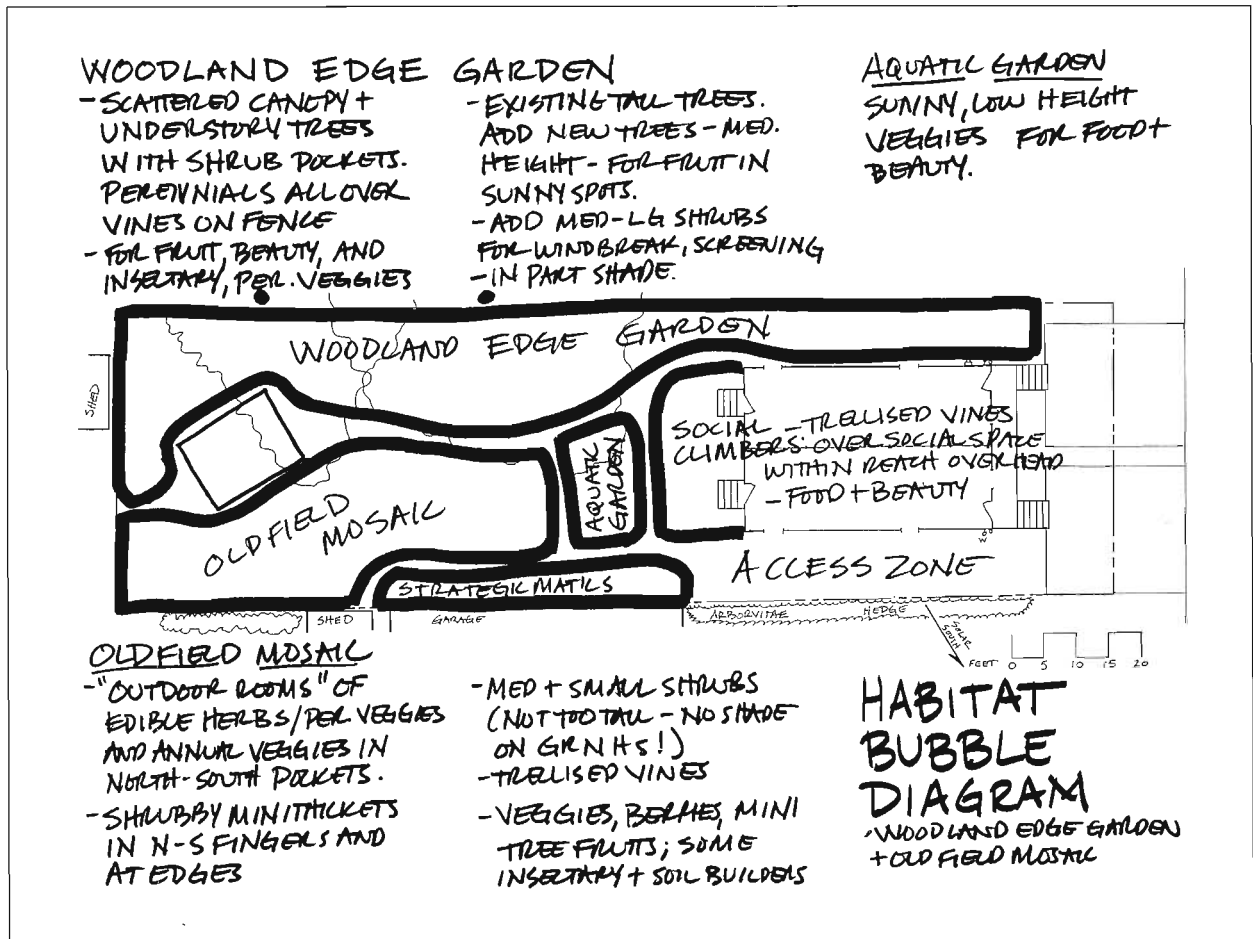 WOODLAND EDGE GARDEN
-SCATTERED CANOPY +
UNDERSTORY TREES
WITH SHRUB POCKETS.
PERENNIALS ALL OVER
VINES ON FENCE
-FOR FRUIT, BEAUTY, AND
INSECTARY, PER. VEGGIES
-EXISTING TALL TREES.
ADD NEW TREES-MED.
HEIGHT-FOR FRUIT IN
SUNNY SPOTS.
-ADD MED-LG SHRUBS
FOR WINDBREAK, SCREENING
-IN PART SHADE.
AQUATIC GARDEN
SUNNY, LOW HEIGHT
VEGGIES FOR FOOD +
BEAUTY.
WOODLAND EDGE GARDEN
SHED
SOCIAL -TRELLISED VINES
CLIMBERS: OVER SOCIAL SPACE
WITHIN REACH OVERHEAD
-FOOD + BEAUTY
AQUATIC
GARDEN
OLDFIELD
MOSAIC
STRATEGIC MATICS
ACCESS ZONE
SHED
GARAGE
ARBORVITAE HEDGE
SOLAR
SOUTH
FEET 0 5 10 15 20
OLDFIELD MOSAIC
-"OUTDOOR ROOMS" OF
EDIBLE HERBS/PER VEGGIES
AND ANNUAL VEGGIES IN
NORTH-SOUTH POCKETS.
-SHRUBBY MINITHICKETS
IN N-S FINGERS AND
AT EDGES
-MED + SMALL SHRUBS
(NOT TOO TALL - NO SHADE
ON GRNHS!)
-TRELLISED VINES
-VEGGIES, BERRIES, MINI
TREE FRUITS; SOME
INSECTARY + SOIL BUILDERS
HABITAT
BUBBLE
DIAGRAM
-WOODLAND EDGE GARDEN
+ OLD FIELD MOSAIC